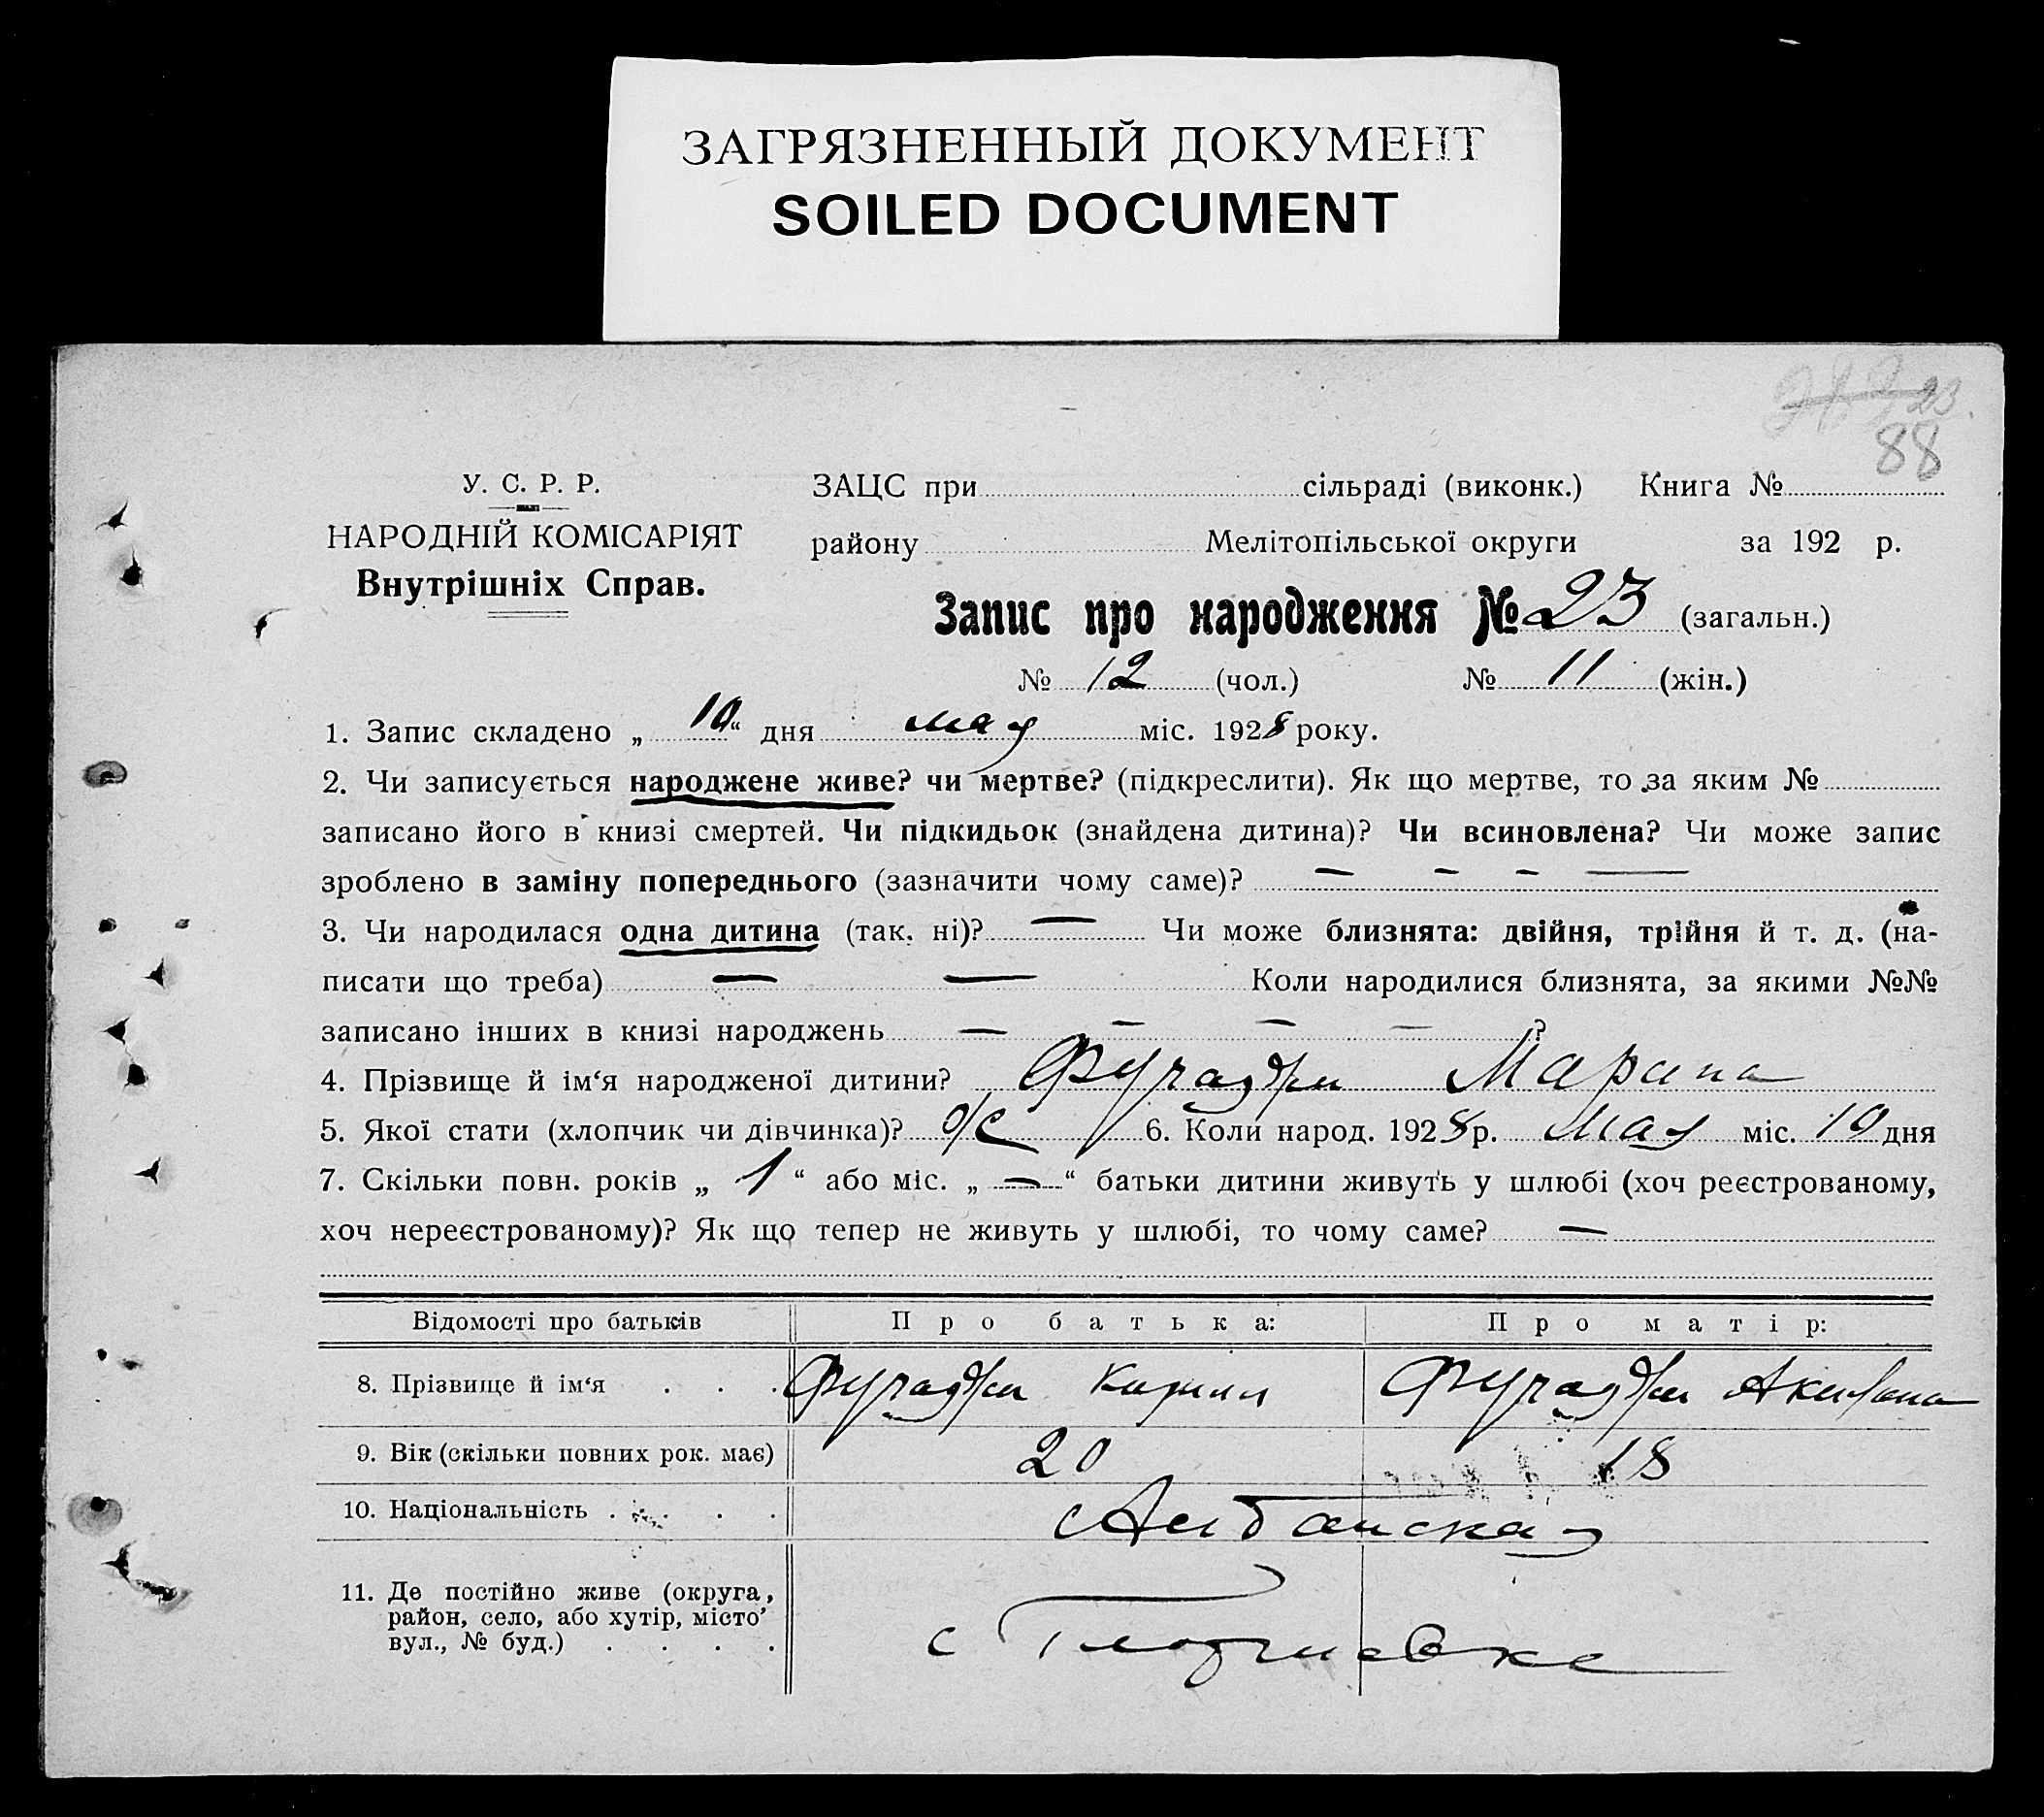 ЗАГРЯЗНЕННЫЙ ДОКУМЕНТ
SOILED DOCUMENT
23.
88
У. С. Р. Р.
НАРОДНІЙ КОМІСАРІЯТ
Внутрішніх Справ.
ЗАЦС при сільраді (виконк.) Книга №
району Мелітопільської округи за 192 р.
Запис про народження № 23 (загальн.)
№ 12 (чол.) № 11 (жін.)
1. Запис складено „ 10 “ дня мая міс. 1928 року.
2. Чи записується народжене живе? чи мертве? (підкреслити). Як що мертве, то за яким №
записано його в книзі смертей. Чи підкидьок (знайдена дитина)? Чи всиновлена? Чи може запис
зроблено в заміну попереднього (зазначити чому саме)? — - - —
3. Чи народилася одна дитина (так, ні)? — Чи може близнята: двійня, трійня й т. д. (на-
писати що треба) — — Коли народилися близнята, за якими №№
записано інших в книзі народжень — — — — ?
4. Прізвище й ім‘я народженої дитини? Фучаджи
5. Якої стати (хлопчик чи дівчинка)? 6. Коли народ. 1928 р. Мая міс. 10 дня
7. Скільки повн. років „ 1 “ або міс. „ — “ батьки дитини живуть у шлюбі (хоч реєстрованому,
хоч нереєстрованому)? Як що тепер не живуть у шлюбі, то чому саме? —
Відомості про батьків Про батька: Про матір:
8. Прізвище й ім‘я . . . Фучаджи Кирилл Фучаджи
9. Вік (скільки повних рок. має) 20 18
10. Національність . . . . Албанская
11. Де постійно живе (округа,
район, село, або хутір, місто’
вул., № буд.) . . . . с Георгиевке